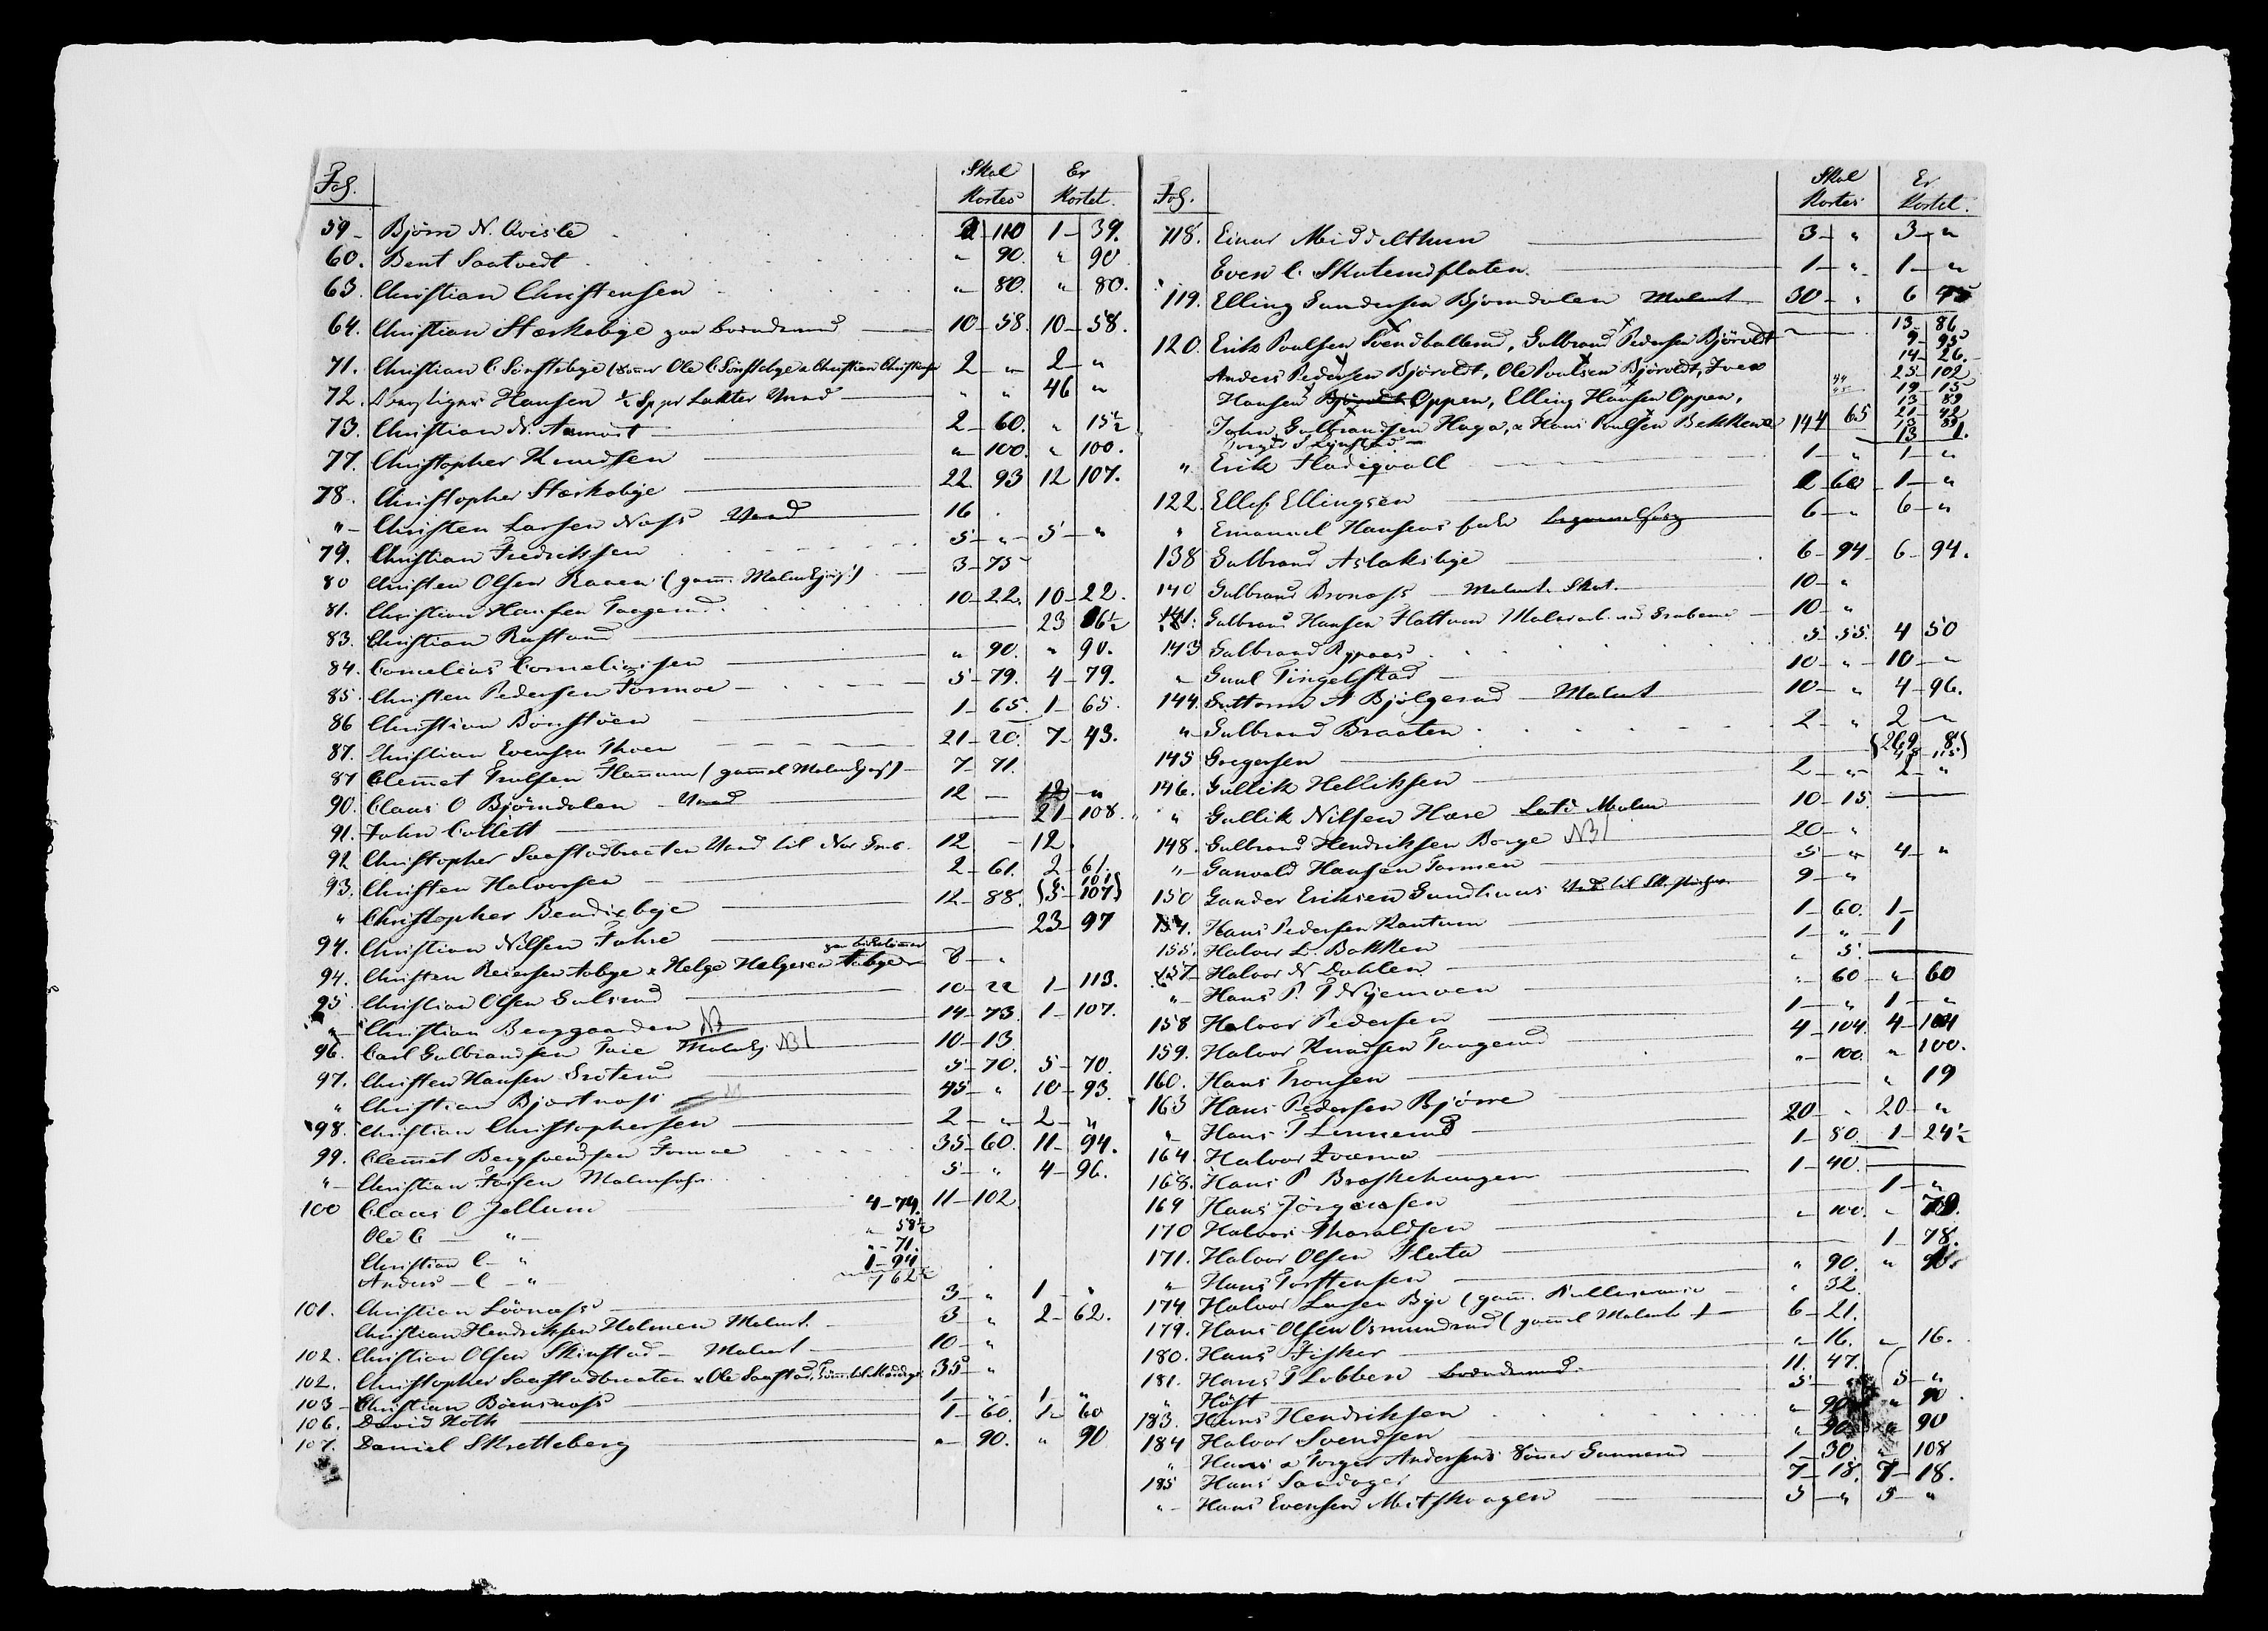 Fol. Skal Kortes Er Kortet.
59 - Björn N. Qvisle 2 - 110 1 - 39.
60. Bent Saatvedt " 90. " 90
63. Christian Christensen " 80. " 80.
64. Christian Stærkebye 10 - 58. 10 - 58.
71. Christian C Sönstebye (sönner Ole C Sönstebye & Christian Christiansen 2 - " 2 - "
72. Hansen ½ Sp pr Lakter " " 46 "
73. Christian N. Aamodt 2 - 60. " 15½
77. Christopher Knudsen " 100. " 100.
78. Christopher Stærkebye 22 93 12 107.
" - Christen Larsen Næss 16
79. Christian Fredriksen 5 - " - 5 - "
80 Christen Olsen Raaen (gam. Malmkjörs.) 3 - 75
81. Christian Hansen Taugerud 10 - 22. 10 - 22.
83. Christian Rustand 23 16½
84. Cornelius Corneliussen " 90. " 90.
85. Christen Pedersen Formoe 5 - 79. 4 - 79.
86 Christian Bönstöen 1 - 65. 1 - 65.
87. Christian Evensen Moen 21 - 20. 7 - 43.
87 Clemet Trulsen Flannum (gammel Malmkjörs) 7 - 71.
90. Claus O Björndalen 12 - 12 - "
91. John Collett 21 - 108.
92 Christopher Saastadbraaten til Nor Grub. 12 - 12.
93. Christen Halvorsen 2 - 61. 2 - 61.
" Christopher Bendixbye 12 - 88. (5 - 107)
94. Christian Nilsen Fahre 23 - 97
94. Christen Reiersen Aabye & Helge Helgesen Aabye 8 - "
95 Christian Olsen Gulsrud 10 - 22 1 - 113.
" - Christian Berggaarden NB 14 - 73. 1 - 107.
96. Carl Gulbrandsen Taie Malmkj. NB! 10 - 13.
97. Christen Hansen Gröterud 5 - 70. 5 - 70.
" Christian Bjørtnæss 45 - " 10 - 93.
98. Christian Christophersen 2 - " 2 - "
99. Clemet Bergsvendsen Formoe 35 - 60. 11 - 94.
" - Christian Fossen Malmkjörs. 5 - " 4 - 96.
100 Claus O Jellum 4 - 74. 11 - 102
Ole C - " - " 58½
Christian C - " " - 71.
Anders - C - " 1 - 94
7 62½
101. Christian Löönæss 3 - " 1 - "
Christian Hendriksen Holmen Malmt. 3 " 2 - 62.
102. Christian Olsen Skinstad - Malmt 10 - "
102. Christopher Saastadbraaten & Ole Saastad, 35 - "
103 - Christian Böensnæss 1 - " 1 - "
106. David Roth 1 - 60. 1 - 60
107. Daniel Skretteberg " - 90. " 90
Fol. Skal Kortes Er Kortet.
118. Einar Middelthun 3 - " 3 - "
" Even C. Skaterudflaten. 1 - " 1 - "
119. Elling Gundersen Bjørndalen Malmt 30 - " 6 45
120. Erik Paulsen Svendballerud, Gulbrand Pedersen Björoldt 13 - 86
9 - 95
Anders Pedersen Björoldt, Ole Paulsen Björoldt, Iver 14 - 26.
25 - 102
Hansen Oppen, Elling Hansen Oppen, 19 - 15
13 89
John Gulbrandsen Haga, & Hans Paulsen Bekken 144 65 21 - 42
13 1.
" Erik Hadigvall 1 - " 1 - "
122. Ellef Ellingsen 2 60 - 1 - "
" Emanuel Hansens 6 - " 6 - "
138 Gulbrand Aslaksbye 6 - 94 6 - 94.
140 Gulbrand Bronæss - Malmt. Skat. 10 - "
141. Gulbrand Hansen Flattum 10 - "
143 Gulbrand Rypaas 5 - 55. 4 50
" Guul Tingelstad 10 - " - 10 - "
144. Guttorm A Bjölgerud - Malmt 10 - " 4 - 96.
" - Gulbrand Braaten 2 - " 2 - "
145 Gregersen (269 8.)
146. Gullik Helliksen 2 - " 2 - "
" Gullik Nilsen Hære 10 - 15.
148. Gulbrand Hendriksen Borge NB! 20 - "
" - Gunvald Hansen Tormen 5 - " 4 - "
150 Gunder Eriksen Gundhuus 9 - "
154. Hans Pedersen Rantum 1 - 60. 1 -
155. Halvor L. Bakken 1 - " - 1
157 - Halvor N Dahlen " 5.
" - Hans P. T Nyemoen " 60 - " 60
158 Halvor Pedersen 1 - " 1 - "
159. Halvor Knudsen Taugerud 4 - 104. 4 - 104
160. Hans Tronsen " - 100. " 100.
163 Hans Pedersen Bjørre " 19
" - Hans T Lunnerud 20 - " 20 - "
164. Halvor Zværna 1 - 80. 1 - 24½
168. Hans P Braskehaugen 1 - 40.
169 Hans Jörgensen 1 - "
170 Halvor Tharaldsen " 100. "
171. Halvor Olsen Flata 1 78.
" Hans Torstensen " 90. " 90.
174 Halvor Larsen Bye (gam. " 32.
179. Hans Olsen Osmundrud (gammel Malmt. 6 - 21.
180. Hans Fisker " 16. " 16.
181. Hans T Lobben 11. 47.
" Höst 5 - " 5 - "
183. Hans Hendriksen " 90 " 90.
184 Halvor Svendsen " 90 " 90
" Hans & Torger Andersens Sönner Gunnerud 1 30. " 108
185 Hans Sandager 7 - 18. 7 - 18.
" - Hans Evensen Meitskougen 5 - " 5 - "